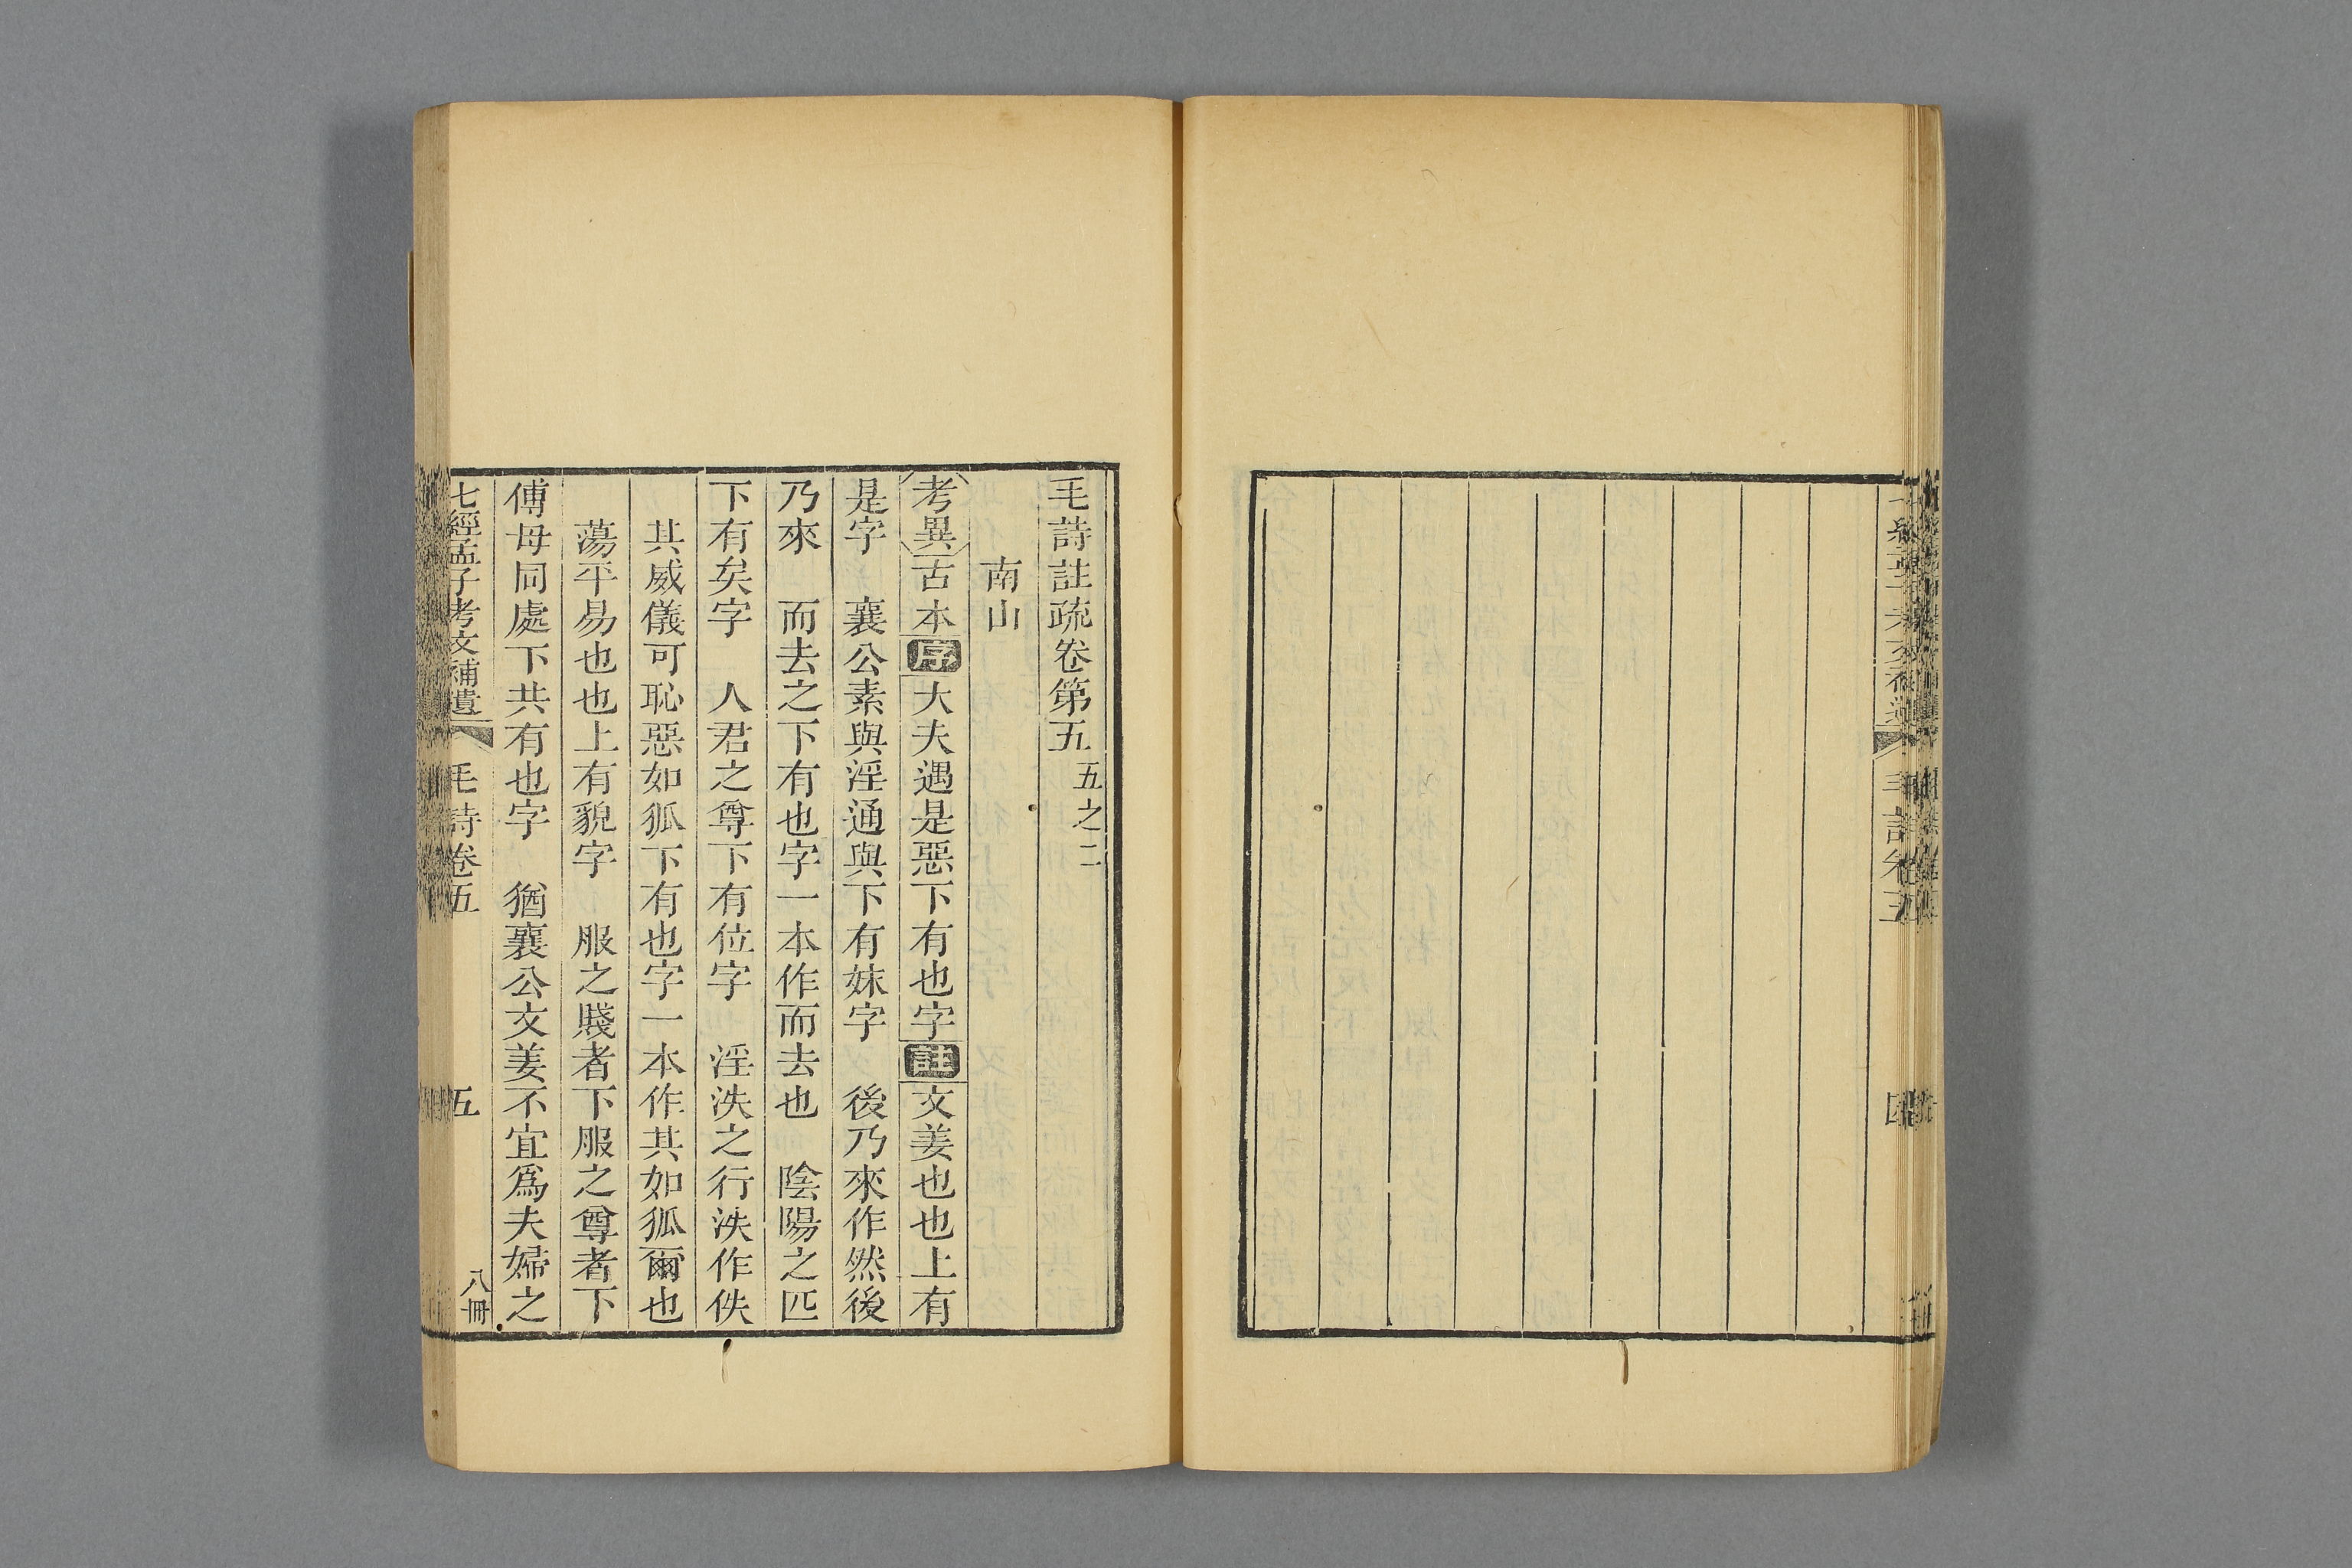 毛詩註疏卷第五 五之二
南山
考異古本序大夫遇是惡下有也字註文姜也也上有
是字　襄公素與淫通與下有妹字　後乃來作然後
乃來　而去之下有也字一本作而去也　陰陽之匹
下有矣字　人君之尊下有位字　淫泆之行泆作佚
其威儀可恥惡如狐下有也字一本作其如狐爾也
蕩平易也也上有貌字　服之賤者下服之尊者下
傅母同處下共有也字　猶襄公文姜不宜爲夫婦之
七經孟子考文補遺 毛詩卷五 五 八冊